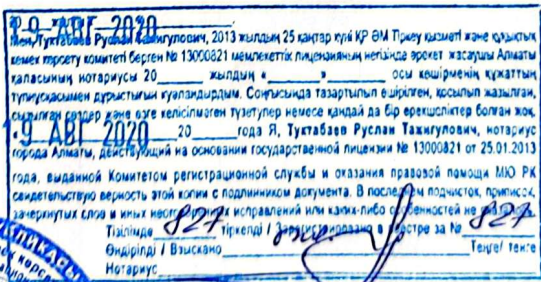 19 АВГ 2020
Мен, Туктабаев Руслан Тажигулович, 2013 жылдың 25 қаңтар күні ҚР ӘМ Тіркеу қызметі және құқықтық
көмек көрсету комитеті берген № 13000821 мемлекеттік лицензияның негізінде әрекет жасаушы Алматы
қаласының нотариусы 20____ жылдың «________» осы көшірменің құжаттың
түпнұсқасымен дұрыстығын куәландырдым. Соңғысында тазартылып өшірілген, қосылып жазылған,
сызылған сөздер және өзге келісілмеген түзетулер немесе қандай да бір ерекшеліктер болған жоқ.
19 АВГ 2020 20____года Я, Туктабаев Руслан Тажигулович, нотариус
города Алматы, действующий на основании государственной лицензии № 13000821 от 25.01.2013
года, выданной Комитетом регистрационной службы и оказания правовой помощи МЮ РК
свидетельствую верность этой копии с подлинником документа. В последнем подчисток, приписок,
зачеркнутых слов и иных исправлений или каких-либо особенностей не
Тізілімде 827 тіркелді / Зарегистрировано в реестре за № 827
Өндірілді / Взыскано Теңге/ тенге
Нотариус